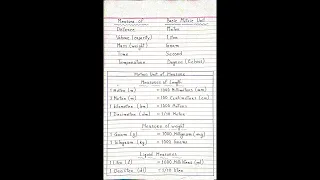 Measure of Basic Metric Unit
Distance Metre
Volume (capacity) Litre
Mass (weight) Gram
Time Second
Temperature Degree (Celsius)
Metric Unit of Measure
Measures of Length
1 Metre (m) = 1000 Millimetres (mm)
1 Metre (m) = 100 Centimetres (cm)
1 Kilometre (km) = 1000 Metres
1 Decimetre (dm) = 1/10 Metre
Measures of weight
1 Gram (g) = 1000 Milligrams (mg)
1 Kilogram (kg) = 1000 Grams
Liquid Measures
1 Litre (l) = 1000 Millilitres (ml)
1 Decilitre (dl) = 1/10 litre